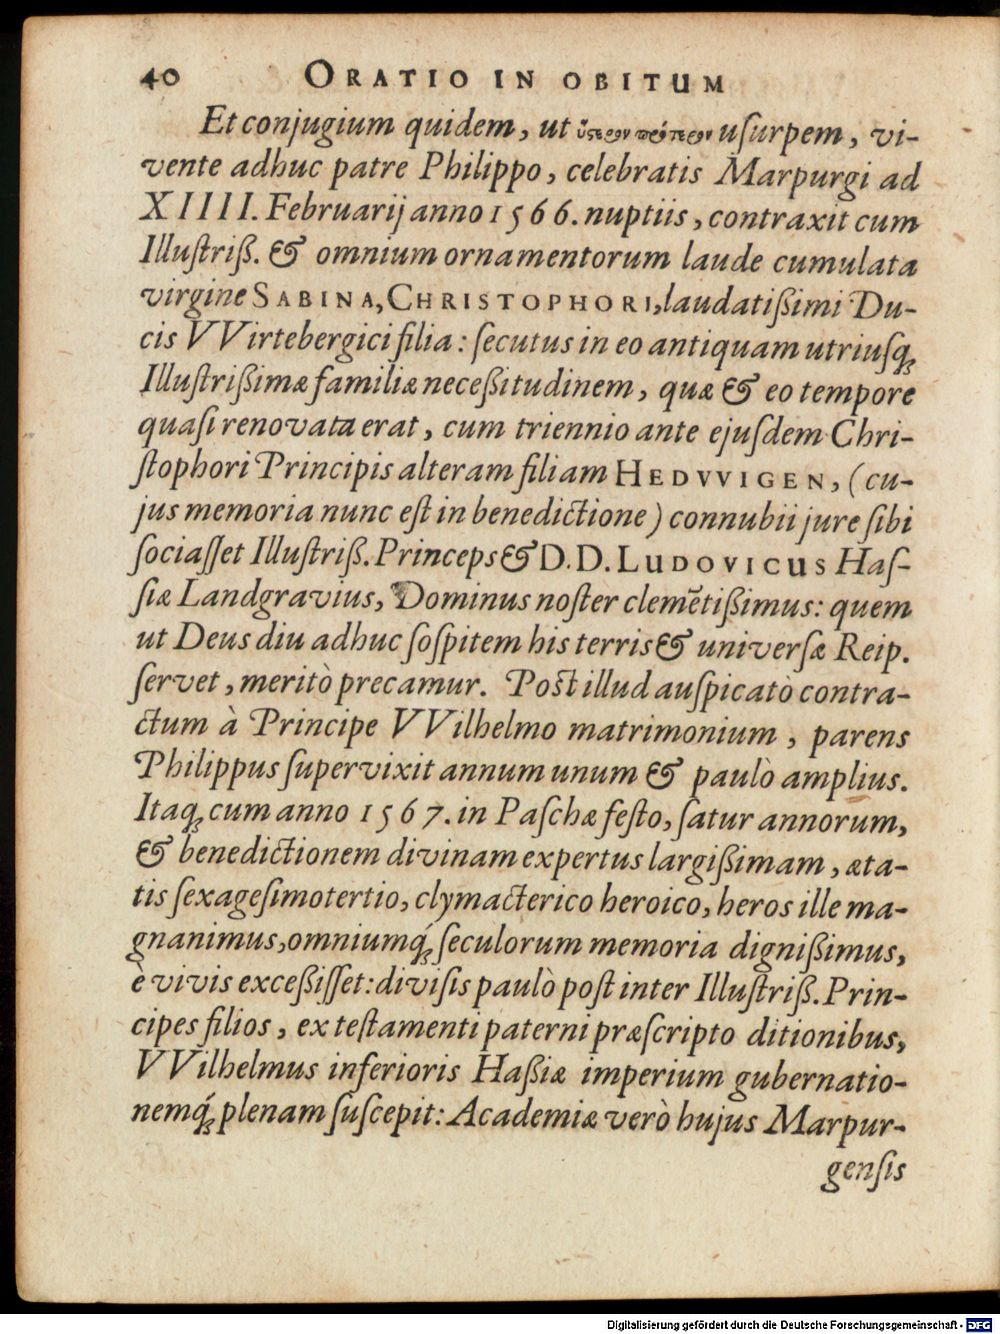 40 ORATIO IN OBITUM
Et conjugium quidem, ut ὕστερον πρότερον usurpem, vi-
vente adhuc patre Philippo, celebratis Marpurgi ad
XIIII. Februarij anno 1566. nuptiis, contraxit cum
Illustriß. & omnium ornamentorum laude cumulata
virgine SABINA, CHRISTOPHORI, laudatißimi Du-
cis VVirtebergici filia: secutus in eo antiquam utriusq;
Illustrißimæ familiæ neceßitudinem, quæ & eo tempore
quasi renovata erat, cum triennio ante ejusdem Chri-
stophori Principis alteram filiam HEDVVIGEN, (cu-
jus memoria nunc est in benedictione) connubii jure sibi
sociasset Illustriß. Princeps & D. D. LUDOVICUS Has-
siæ Landgravius, Dominus noster clemētißimus: quem
ut Deus diu adhuc sospitem his terris & universæ Reip.
servet, meritò precamur. Post illud auspicatò contra-
ctum à Principe VVilhelmo matrimonium, parens
Philippus supervixit annum unum & paulò amplius.
Itaq; cum anno 1567. in Paschæ festo, satur annorum,
& benedictionem divinam expertus largißimam, æta-
tis sexagesimotertio, clymacterico heroico, heros ille ma-
gnanimus, omniumq́; seculorum memoria dignißimus,
è vivis exceßisset: divisis paulò post inter Illustriß. Prin-
cipes filios, ex testamenti paterni præscripto ditionibus,
VVilhelmus inferioris Haßiæ imperium gubernatio-
nemq́; plenam suscepit: Academiæ verò hujus Marpur-
gensis
Digitalisierung gefördert durch die Deutsche Forschungsgemeinschaft - DFG